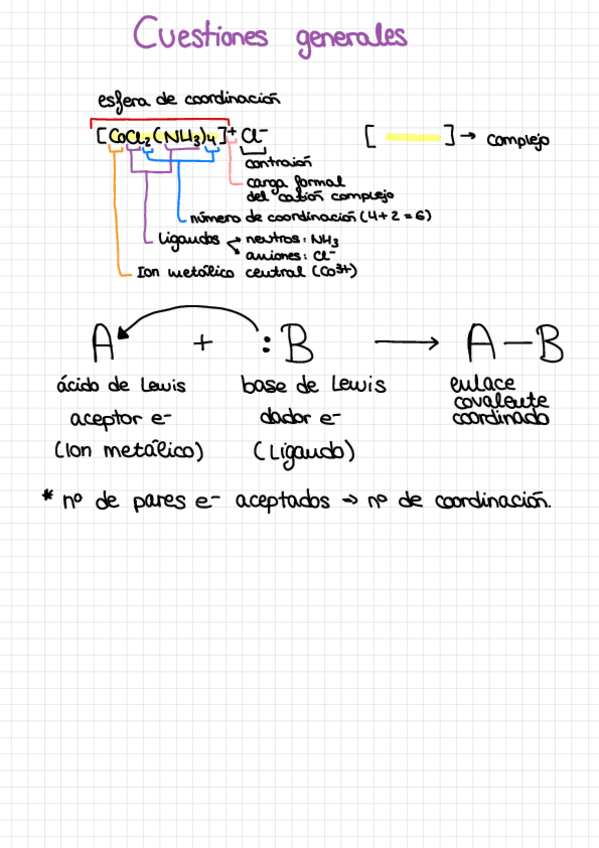 Cuestiones generales
esfera de coordinación
[CoCl₂(NH₃)₄]⁺ Cl⁻
[ ] → complejo
contraión
carga formal
del catión complejo
número de coordinación (4+2=6)
Ligandos neutros: NH₃
aniones: Cl⁻
Ion metálico central (Co³⁺)
A + :B → A — B
ácido de Lewis base de Lewis enlace
covalente
coordinado
aceptor e⁻ dador e⁻
(Ion metálico) (Ligando)
* nº de pares e⁻ aceptados → nº de coordinación.